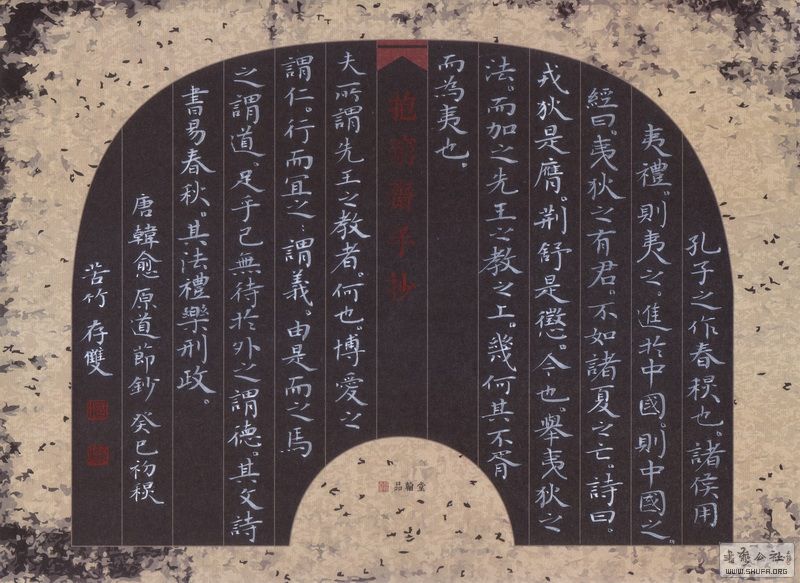 孔子之作春秋也。諸侯用
夷禮。則夷之。進於中國。則中國之。
經曰。夷狄之有君。不如諸夏之亡。詩曰。
戎狄是膺。荆舒是懲。今也。舉夷狄之
法。而加之先王之教之上。幾何其不胥
而為夷也。
齋手抄
夫所謂先王之教者。何也。博愛之
謂仁。行而冝之〻謂義。由是而之焉
之謂道、足乎己無待於外之謂德。其文詩
書易春秋。其法禮樂刑政。
唐韓愈原道節鈔 癸巳初秋
苦竹 存雙
品翰堂
書藝公社
WWW.SHUFA.ORG